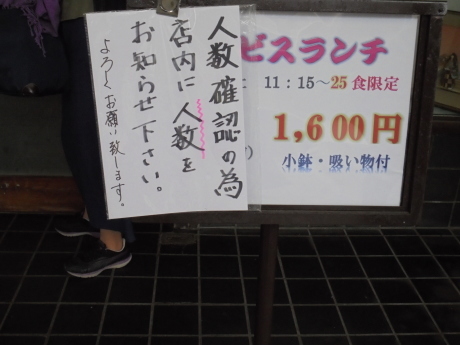 人数確認の為
店内に人数を
お知らせ下さい。
よろしくお願い致します。
ビスランチ
11:15～25食限定
1,600円
小鉢・吸い物付